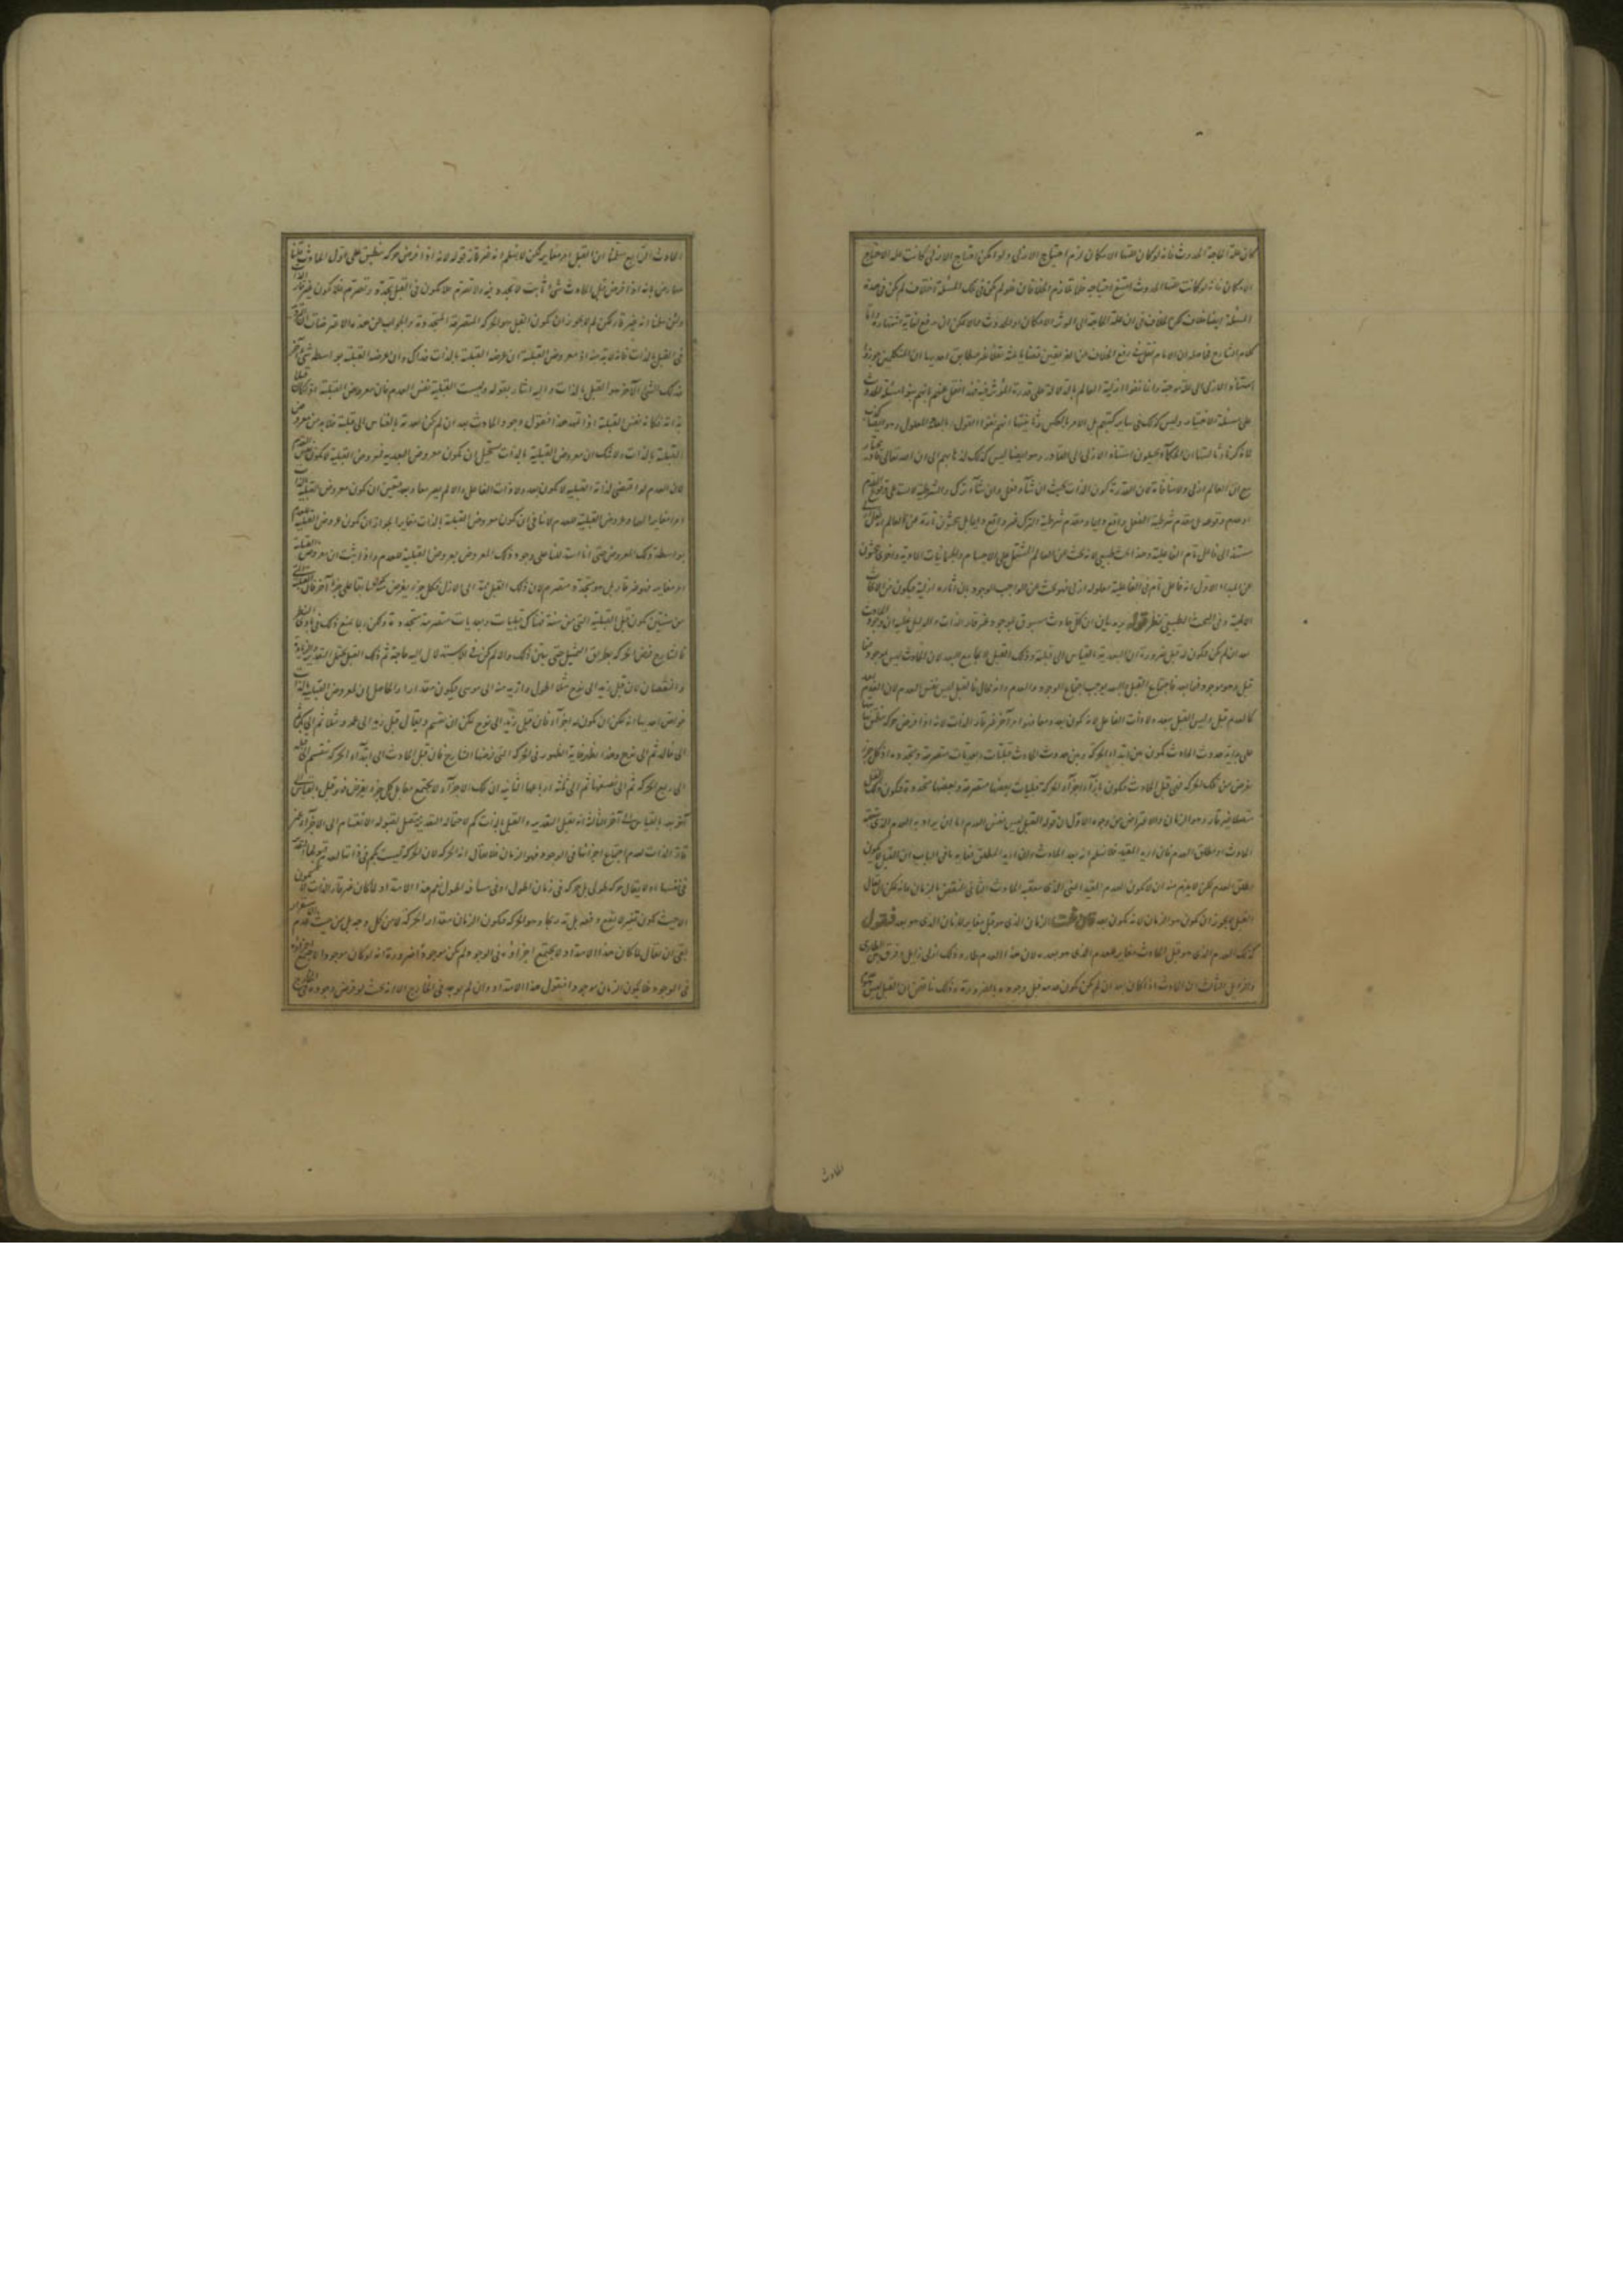 كان علة الحاجة الحدوث فانه لو كان علتها الامكان لزم احتياج الازلى ولو امكن احتياج الازلى كانت علة الاحتياج
الامكان فانه لو كانت علتها الحدوث امتنع احتياجه فلا تلازم الخلافان فلو لم يكن فى تلك المسئلة اختلاف لم يكن فى هذه
المسئلة ايضا خلاف لكن الخلاف فى ان علة الحاجة الى المؤثر الامكان او الحدوث مما لا يمكن ان يدفع لغاية اشتهاره واما
كلام الشارح فحاصله ان الامام نقل فى رفع الخلاف من الفريقين قضايا ثلثة نقلا غير مطابق احديها ان المتكلمين جوزوا
استناد الازلى الى علة موجبة وانما نفوا ازلية العالم بادلة دالة على قدرة المؤثر فيه فقد انتقل عنهم بانهم بنوا مسئلة الحدوث
على مسئلة الاختيار وليس كذلك فى ساير كتبهم بل الامر بالعكس وثانيتها انهم نفوا القول بالعلة والمعلول وهو ايضا كذب
لما ذكرنا وثالثتها ان الحكماء يحيلون استناد الازلى الى القادر وهو ايضا ليس كذلك لذهابهم الى ان الله تعالى قادر مختار
مع ان العالم ازلى ولا منافاة لان القدرة كون الذات بحيث ان شاء فعل وان شاء ترك والشرطية لا تستدعى وقوع المقدم
او عدم وقوعه بل مقدم شرطية الفعل واقع دايما ومقدم شرطية الترك غير واقع دايما بل يبحثون تارة عن العالم الازلى
مستند الى فاعل تام الفاعلية وهذا البحث طبيعى لانه بحث عن العالم المشتمل على الاجسام والجسمانيات المادية واخرى يبحثون
عن المبداء الاول انه فاعل تام فى الفاعلية معلوله ازلى فهو بحث عن الواجب الوجود بان اثاره ازلية فيكون من الابحاث
الالهية وفى البحث الطبيعى نظر قوله يريد بيان ان كل حادث مسبوق بموجود غير قار الذات والدليل عليه ان وجود الحادث
بعد ان لم يكن فيكون له قبل ضرورة ان البعدية بالقياس الى قبلية وذلك القبل لا يجامع البعد لان الحادث ليس بموجود
قبل وهو موجود فيما بعد فاجتماع القبل والبعد يوجب اجتماع الوجود والعدم وانه محال فالقبل ليس نفس العدم لان العدم بعد
كالعدم قبل وليس القبل ببعد ولا ذات الفاعل لانه يكون بعد ومعا فهو امر آخر غير قار الذات لانه اذا فرض حركة منطبق
على بداية حدوث الحادث يكون بين ابتداء الحركة وبين حدوث الحادث قبليات وبعديات متصرمة ومتجددة اذ كل جزء
يفرض من تلك الحركة فهى قبل الحادث فيكون بازاء اجزاء الحركة قبليات بعضها متصرمة وبعضها متجددة فيكون ذلك القبل
متصلا غير قار وهو الزمان والاعتراض من وجوه الاول ان قوله القبل ليس نفس العدم اما ان يراد به العدم الذى يعقبه
الحادث او مطلق العدم فان اريد المقيد فلا نسلم انه بعد الحادث وان اريد المطلق فغاية ما فى الباب ان القبل لا يكون
مطلق العدم لكن لا يلزم منه ان لا يكون العدم المقيد اعنى الذى يعقبه الحادث الثانى النقض بالزمان فانه يمكن ان يقال
القبل لا يجوز ان يكون هو الزمان لانه يكون بعد فان قلت الزمان الذى هو قبل مغاير للزمان الذى هو بعد فنقول
كذلك العدم الذى هو قبل الحادث مغاير للعدم الذى هو بعده لان هذا العدم طار وذلك ازلى زايل وفرق بين الطارى
والزايل الثالث ان الحادث اذا كان بعد ان لم يكن يكون عدمه قبل وجوده بالضرورة وذلك يناقض ان القبل ليس
الحادث
الحادث الرابع سلمنا ان القبل امر مغاير لكن لا نسلم انه غير قار قوله لانه اذا فرض حركة ينطبق على اول الحادث قلنا
معارض بانه اذا فرض قبل الحادث شئ ثابت لا يتجدد فيه ولا تصرم فلا يكون فى القبل تجدد وتصرم فلا يكون غير قار
ولئن سلمنا انه غير قار لكن لم لا يجوز ان يكون القبل هو الحركة المتصرمة المتجددة والجواب عن هذه الاعتراضات
فى القبل بالذات فانه لا بد منه اذ معروض القبلية ان عرضه القبلية بالذات فذاك وان عرضه القبلية بواسطة شئ آخر
فذلك الشئ الآخر هو القبل بالذات واليه اشار بقوله وليست القبلية نفس العدم فان معروض القبلية اذا كان قبلا
بذاته فكانه نفس القبلية اذا تمهد هذا فنقول وجود الحادث بعد ان لم يكن بعدية بالقياس الى قبلية فلا بد من معروض
القبلية بالذات ولا شك ان معروض القبلية بالذات يستحيل ان يكون معروض البعدية فمعروض القبلية لا يكون نفس العدم
لان العدم لو اقتضى لذاته القبلية لا يكون بعد ولا ذات الفاعل والا لم يصر معا وبعد فتعين ان يكون معروض القبلية بالذات
امرا مغايرا لهما وعروض القبلية للعدم لا ينافى ان يكون معروض القبلية بالذات مغايرا لجواز ان يكون عروض القبلية للعدم
بواسطة ذلك المعروض حتى انا استدللنا على وجود ذلك المعروض بعروض القبلية للعدم واذا ثبت ان معروض القبلية
امر مغاير فهو غير قار بل هو متجدد ومتصرم لان ذلك القبل ممتد الى الازل فكل جزء يفرض منه يكون سابقا على جزء آخر فان القبلية
من سنتين يكون قبل القبلية التى من سنة فهناك قبليات وبعديات متصرمة متجددة ولكن ربما يمنع ذلك فى بادى النظر
فالشارح فرض الحركة بطريق التمثيل حتى يتبين ذلك والا لم يكن فى الاستدلال اليه حاجة ثم ذلك القبل يقبل التقدير والزيادة
والنقصان لان قبل زيد الى نوح مثلا اطول وازيد منه الى موسى فيكون مقدارا والحاصل ان لمعروض القبلية بالذات
خواص احديها انه يمكن ان يكون له اجزاء فان قبل زيد الى نوح يمكن ان ينقسم ويقال قبل زيد الى عمرو مثلا ثم الى بكر
الى خالد ثم الى نوح وهذا يظهر غاية الظهور فى الحركة التى فرضها الشارح فان قبل الحادث الى ابتداء الحركة ينقسم الى قبله
الى ربع الحركة ثم الى نصفها ثم الى ثلثة ارباعها الثانية ان تلك الاجزاء لا تجتمع معا بل كل جزء يفرض فهو قبل بالقياس الى
آخر بعد بالقياس الى آخر الثالثة انه يقبل التقدير والقبل بالذات كم لاحتماله التقدير متصل لقبوله الانقسام الى الاجزاء غير
قار الذات لعدم اجتماع اجزائها فى الوجود فهو الزمان فلا يقال انه الحركة لان الحركة ليست بكم فى ذاتها
فى نفسها اذ لا يقال حركة طويل بل حركة فى زمان اطول او فى مسافة اطول نعم هذا الامتداد لما كان غير قار الذات
الا حيث يكون تغير لا يقع دفعة بل تدريجا وهو الحركة فيكون الزمان مقدار الحركة لا من كل وجه بل من حيث عدم الاستقرار
بقى ان يقال لما كان هذا الامتداد لا يجتمع اجزاؤه فى الوجود لم يكن موجودا ضرورة انه لو كان موجودا لاجتمع اجزاؤه
فى الوجود فلا يكون الزمان موجودا فنقول هذا الامتداد وان لم يوجد فى الخارج الا انه بحيث لو فرض وجوده فى الخارج